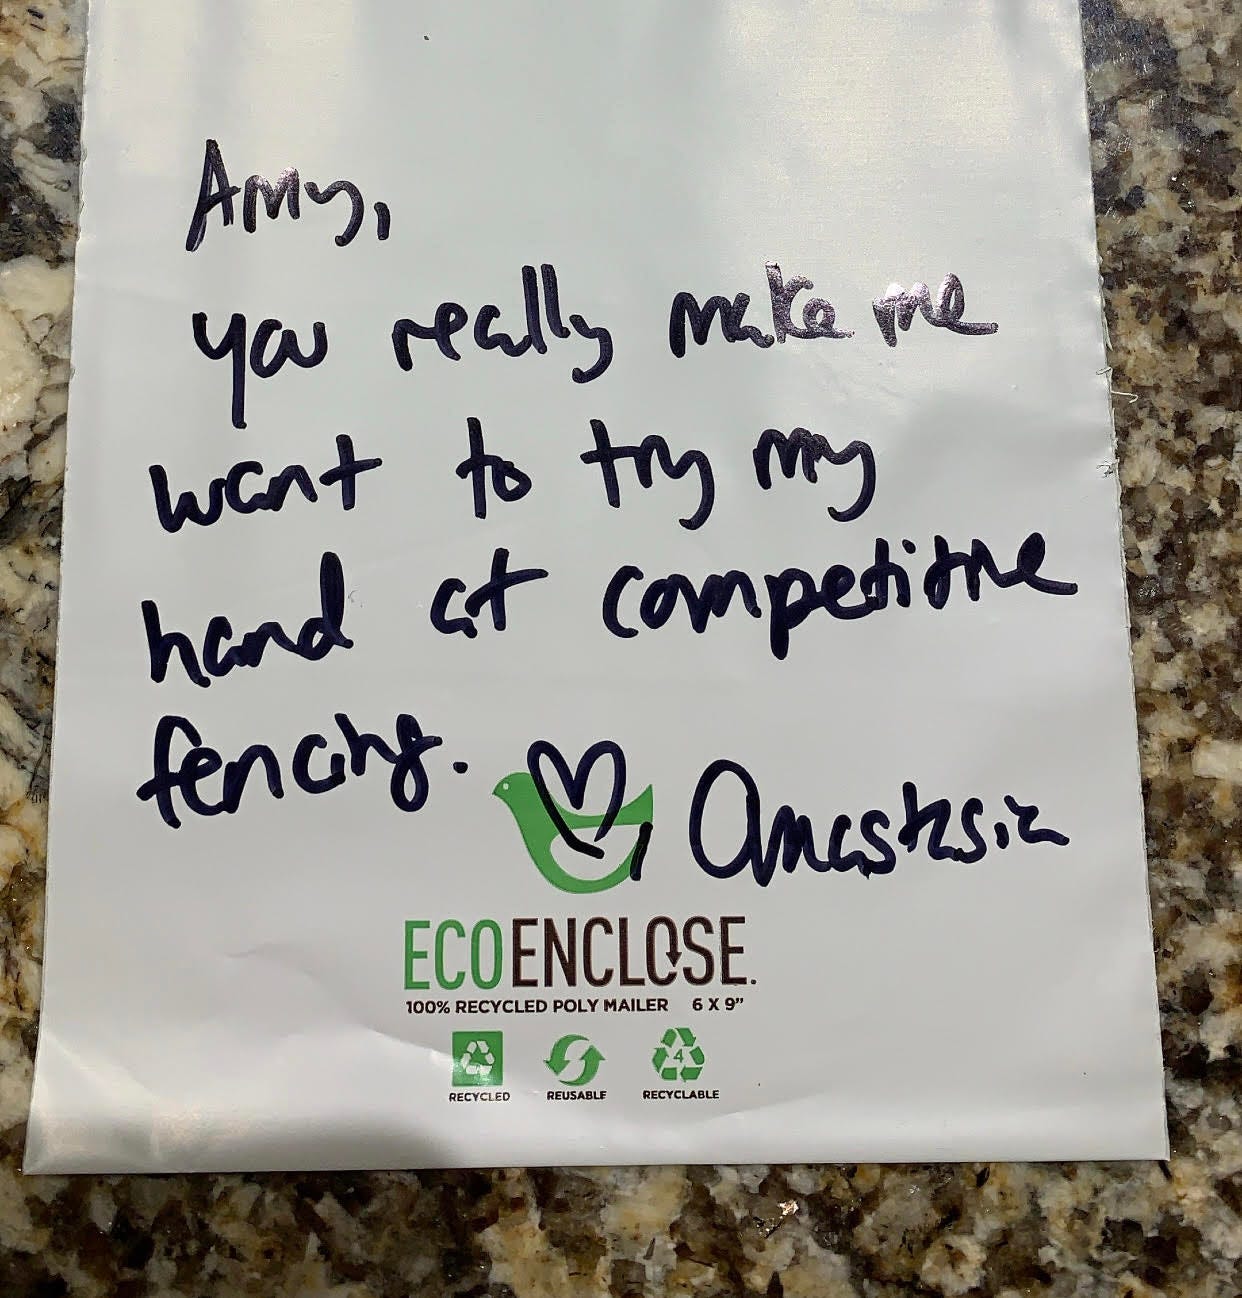 Amy,
you really make me
want to try my
hand at competitive
fencing.
♡, Anastasia
ECOENCLOSE.
100% RECYCLED POLY MAILER 6 X 9"
4
RECYCLED REUSABLE RECYCLABLE